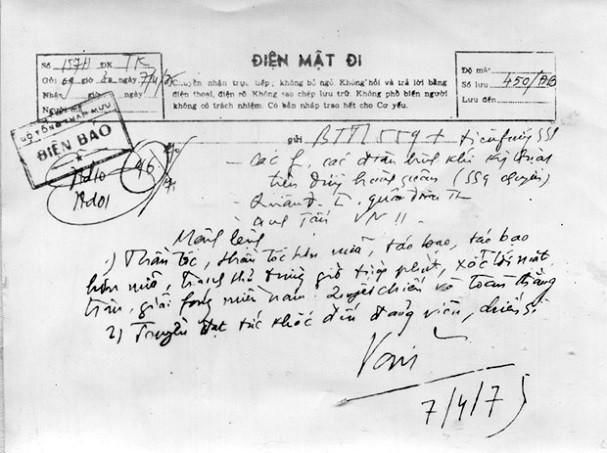 ĐIỆN MẬT ĐI
Số 157H ĐK TK
Gửi giờ ngày 7/4/75
Nhận giờ ngày
Người
Chuyển nhận trực tiếp; không bỏ ngỏ. Không hỏi và trả lời bằng
điện thoại, điện rõ. Không sao chép lưu trữ. Không phổ biến người
không có trách nhiệm. Có bản nhập trao hết cho Cơ yếu.
Độ mật
Số lưu 450/ĐB
Lưu đến
BỘ TỔNG THAM MƯU
ĐIỆN BÁO
gửi BTM 559 +
- Các f, các
- Quân đ. I, quân đoàn
Mệnh lệnh
1) Thần tốc, thần tốc hơn nữa, táo bạo, táo bạo
hơn nữa, tranh thủ từng giờ từng phút, xốc tới mặt
trận, giải fóng miền nam. Quyết chiến và toàn thắng
2) Truyền đạt tức khắc đến đảng viên, chiến sĩ
Văn
7/4/75